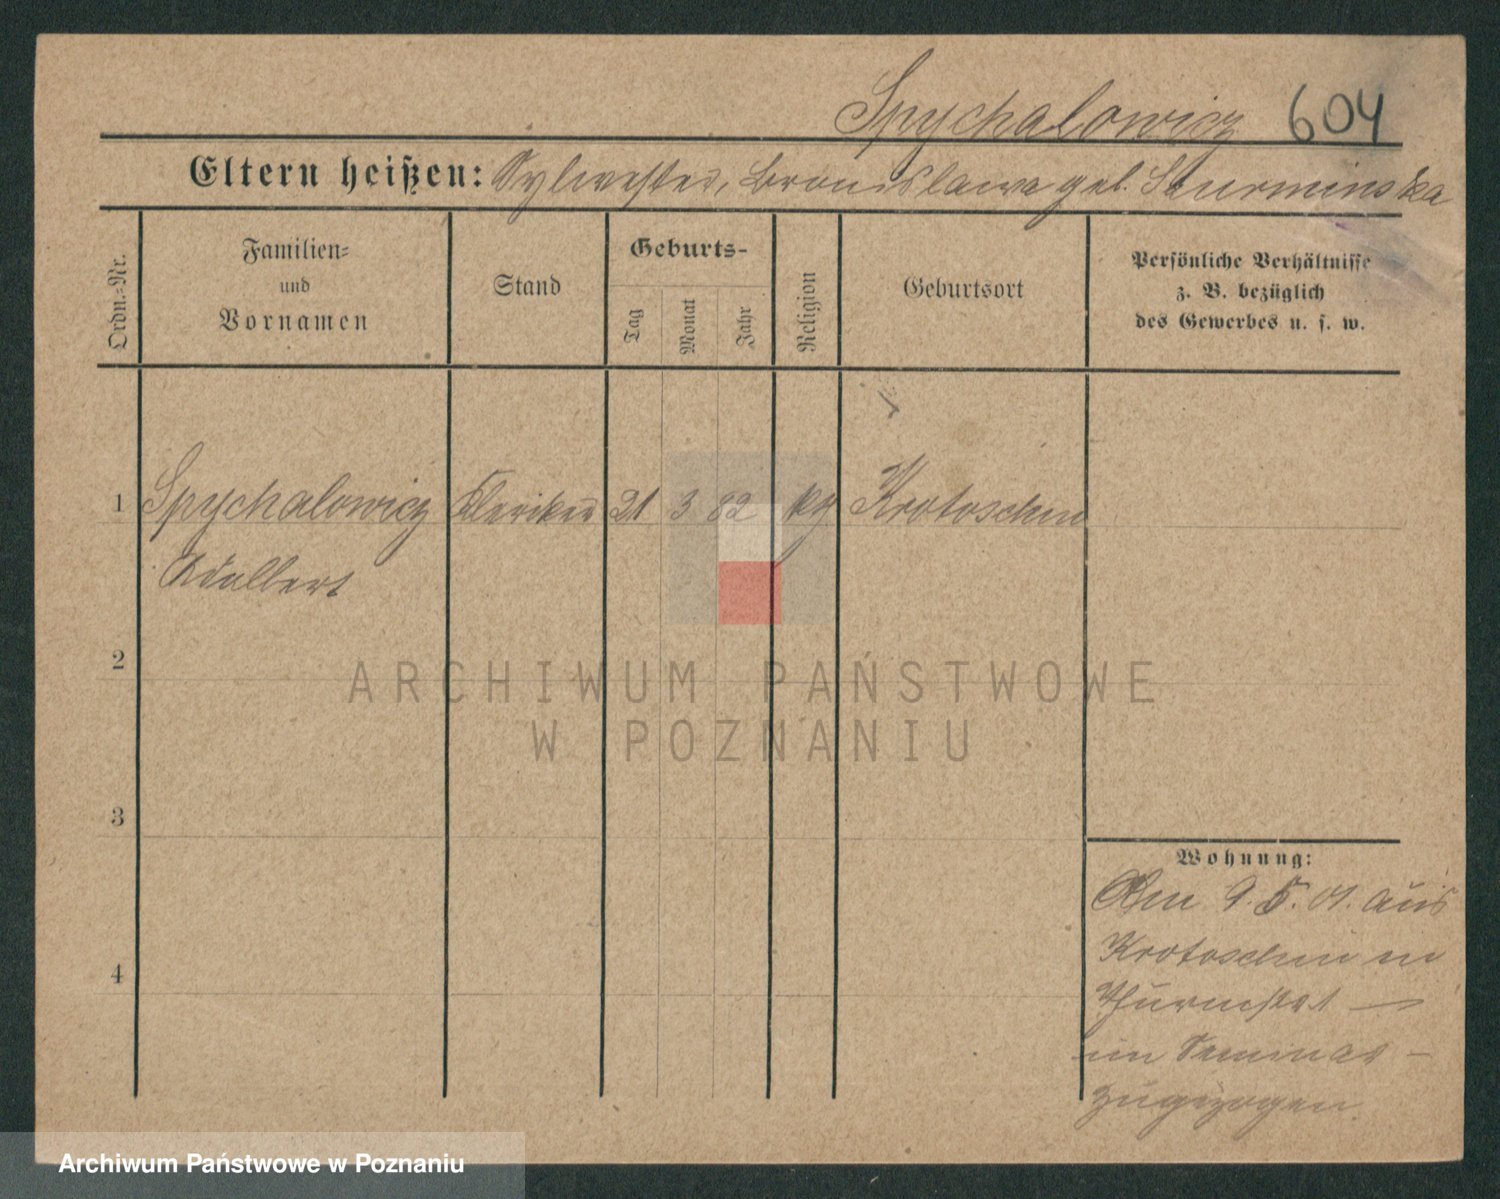 Spychalowicz 604
Eltern heißen: Sylvester, Bronislawa geb. Skurminska
Ordn.-Nr.
Familien-
und
Vornamen
Stand
Geburts-
Tag
Monat
Jahr
Religion
Geburtsort
Persönliche Verhältnisse
z. B. bezüglich
des Gewerbes u. s. w.
1 Spychalowicz Kleriker 21 3 82 kg Krotoschin
Adalbert
2
3
4
Wohnung:
Am 9.5.01. aus
Krotoschin in
Thurmstr 1 —
im Seminar —
zugezogen.
ARCHIWUM PAŃSTWOWE
W POZNANIU
Archiwum Państwowe w Poznaniu